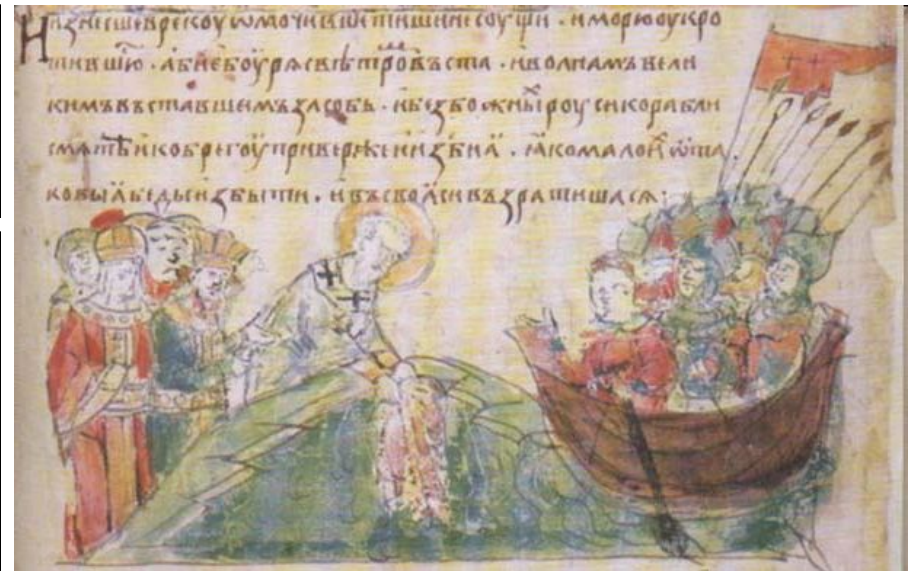 И изнесше в рекоу ѡмочивше тишине соущи · и морю оукро
тившю · абие боурѧ с вѣтро въста · и волнамъ вели
кимъ въставшемъ засобь · и безбожны роуси корабли
смѧтѣ и ко брегоу привержени изби ꙗ · ꙗко мало и ѿ та
ковыꙗ беды избыти · и въ своꙗси възратишасѧ ·